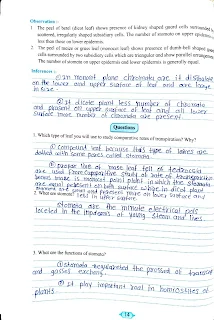 Observation :
1 The peel of betel (dicot leaf) shows presence of kidney shaped guard cells surrounded by
scattered, irregularly shaped subsidiary cells. The number of stomata on upper epidermis
less than those on lower epidermis.
2 The peel of maize or grass leaf (monocot leaf) shows presence of dumb-bell shaped guard
cells surrounded by two subsidiary cells which are triangular and shows parallel arrangement.
The number of stomata on upper epidermis and lower epidermis is generally equal.
Inference :
on the lower and upper surface of leaf and are large
in size
② In dicote plant less number of
and present on upper surface of leaf and all lower
surface more number of are present
Questions
1. Which type of leaf you will use to study comparative rates of transpiration? Why?
① compound leaf because this type of leaves are
dotted with some pores called stomata
are used from comparative study of rate of
leaves made in monocot plant plants in which the stomata
are equal present on both surface where in dicot plant
stomata are small and present more on lower surface and
less in upper surface
2. What are stomata?
Stomata are the minute
located in the epidermis of young stem and
3. What are the functions of stomata?
① stomata the process of
and gasses exchange.
② It play important roal in
plants
14